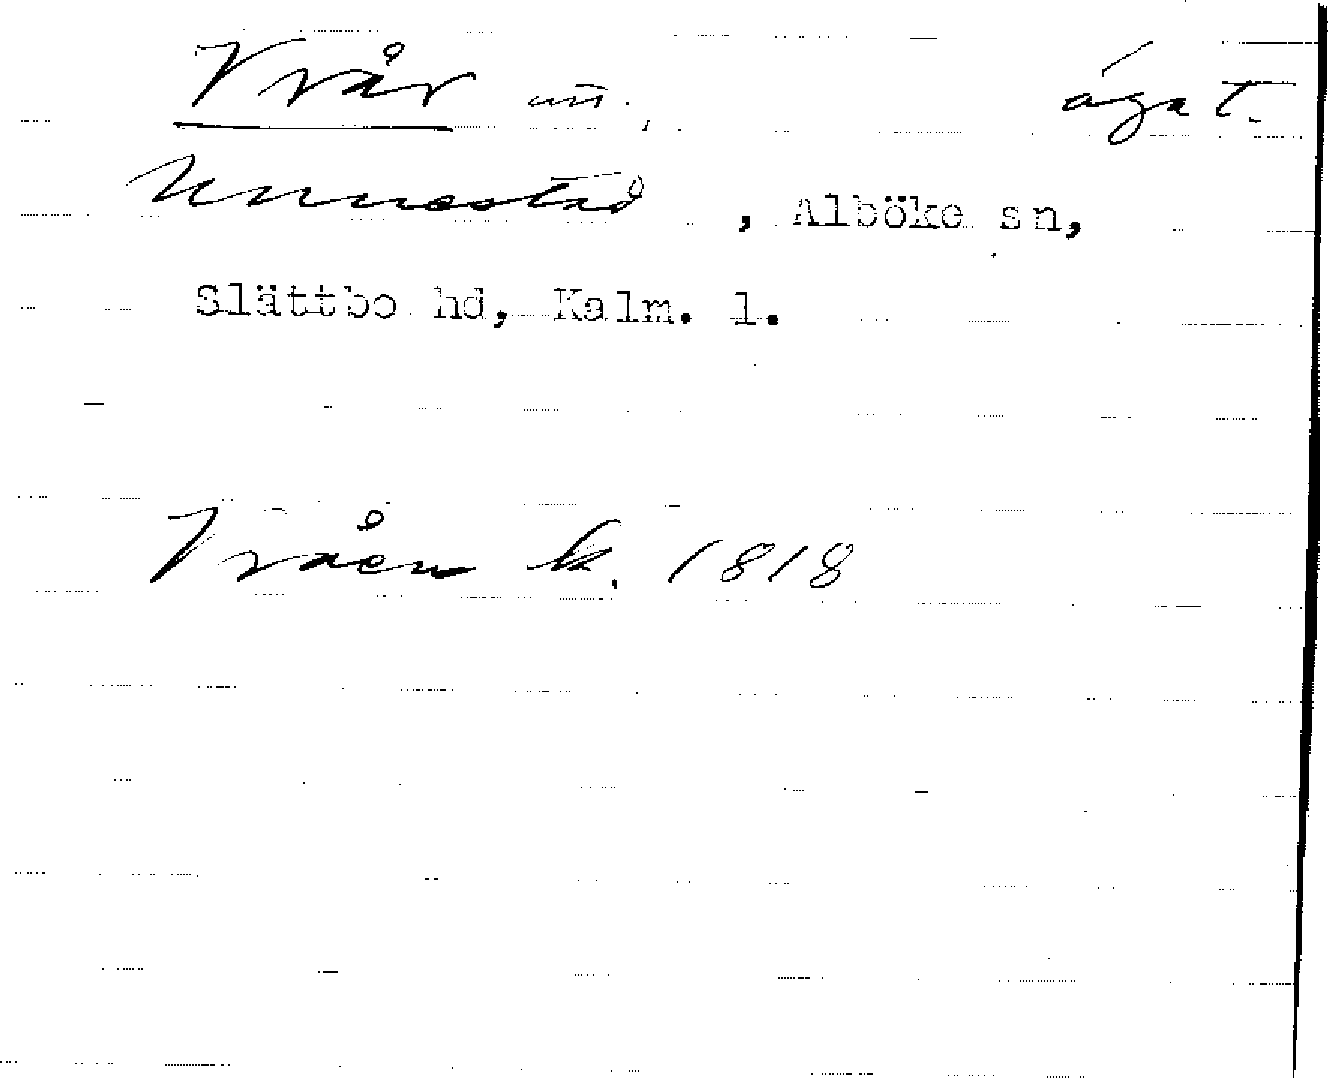 Vrår un. ágat.
Unnestad, Alböke sn,
Slättbo hd, Kalm. l.
Vråen k. 1818